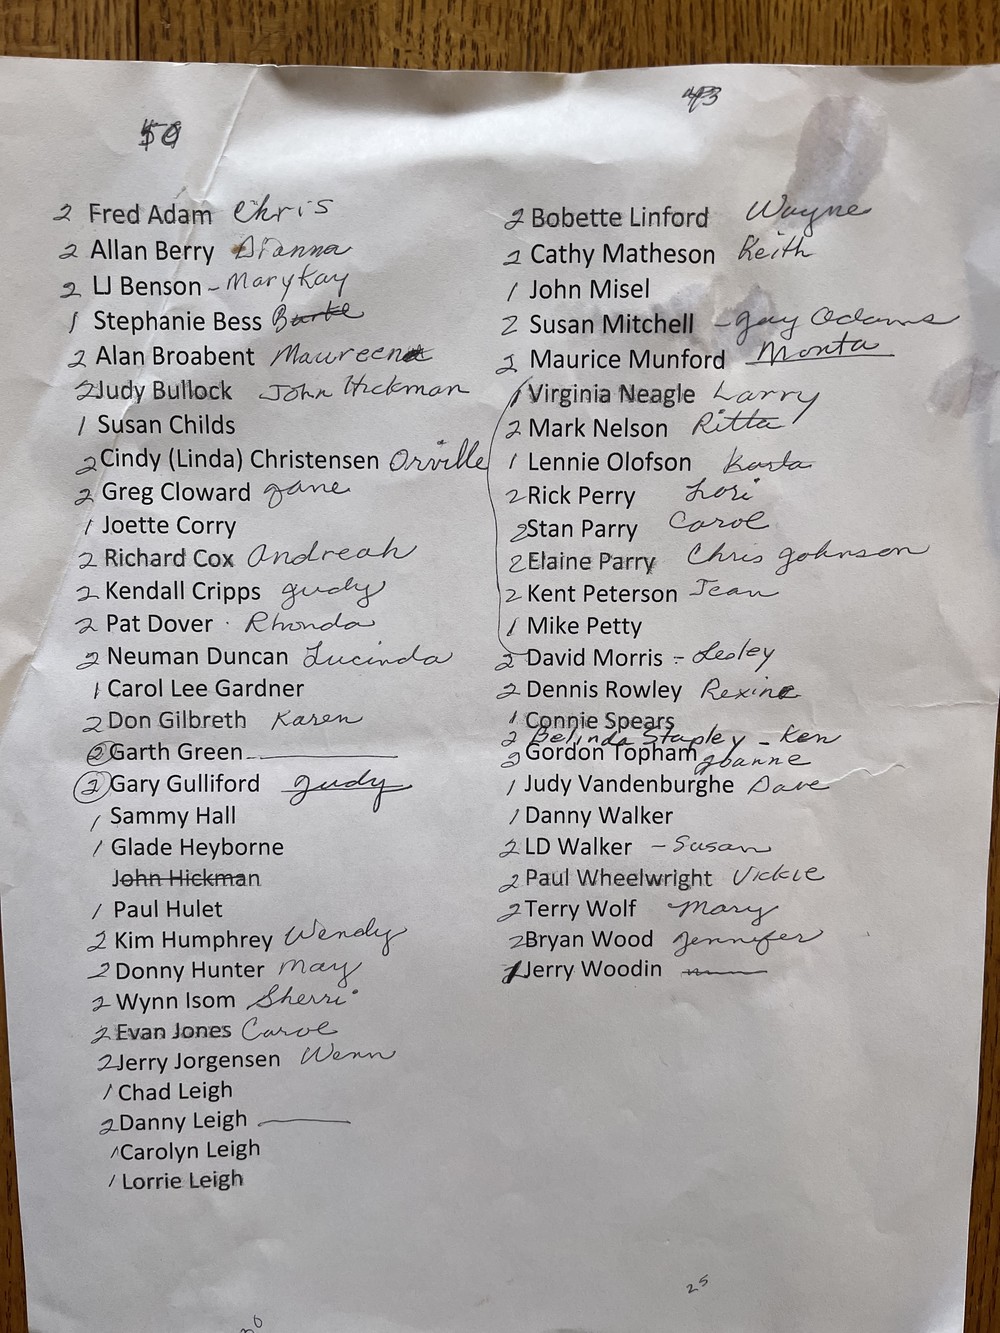 2 Fred Adam Chris
2 Allan Berry Dianna
2 LJ Benson - MaryKay
1 Stephanie Bess Burke
2 Alan Broabent Maureen
2 Judy Bullock John Hickman
1 Susan Childs
2 Cindy (Linda) Christensen Orville
2 Greg Cloward Jane
1 Joette Corry
2 Richard Cox Andreah
2 Kendall Cripps Judy
2 Pat Dover Rhonda
2 Neuman Duncan Lucinda
1 Carol Lee Gardner
2 Don Gilbreth Karen
2 Garth Green
2 Gary Gulliford Judy
1 Sammy Hall
1 Glade Heyborne
John Hickman
1 Paul Hulet
2 Kim Humphrey Wendy
2 Donny Hunter May
2 Wynn Isom Sherri
2 Evan Jones Carol
2 Jerry Jorgensen Wenn
1 Chad Leigh
2 Danny Leigh
1 Carolyn Leigh
1 Lorrie Leigh
43
2 Bobette Linford Wayne
2 Cathy Matheson Keith
1 John Misel
2 Susan Mitchell - Gay Adams
2 Maurice Munford Monta
1 Virginia Neagle Larry
2 Mark Nelson Ritta
1 Lennie Olofson Karla
2 Rick Perry Lori
2 Stan Parry Carol
2 Elaine Parry Chris Johnson
2 Kent Peterson Jean
1 Mike Petty
2 David Morris - Lesley
2 Dennis Rowley Rexine
1 Connie Spears
2 Belinda Stapley - Ken
2 Gordon Topham Joanne
1 Judy Vandenburghe Dave
1 Danny Walker
2 LD Walker - Susan
2 Paul Wheelwright Vickie
2 Terry Wolf Mary
2 Bryan Wood Jennifer
1 Jerry Woodin
25